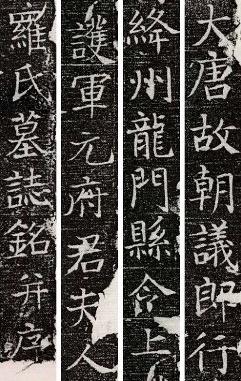 大唐故朝議郎行
絳州龍門縣令上
護軍元府君夫人
羅氏墓誌銘并序